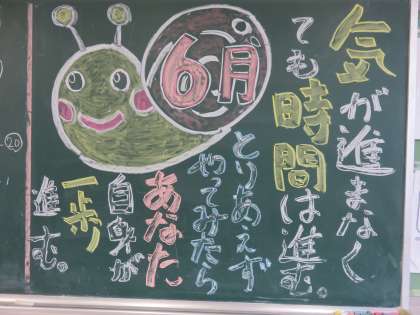 6月
気が進まなく
ても時間は進む。
とりあえず
やってみたら
あなた
自身が
一歩
進む。
20